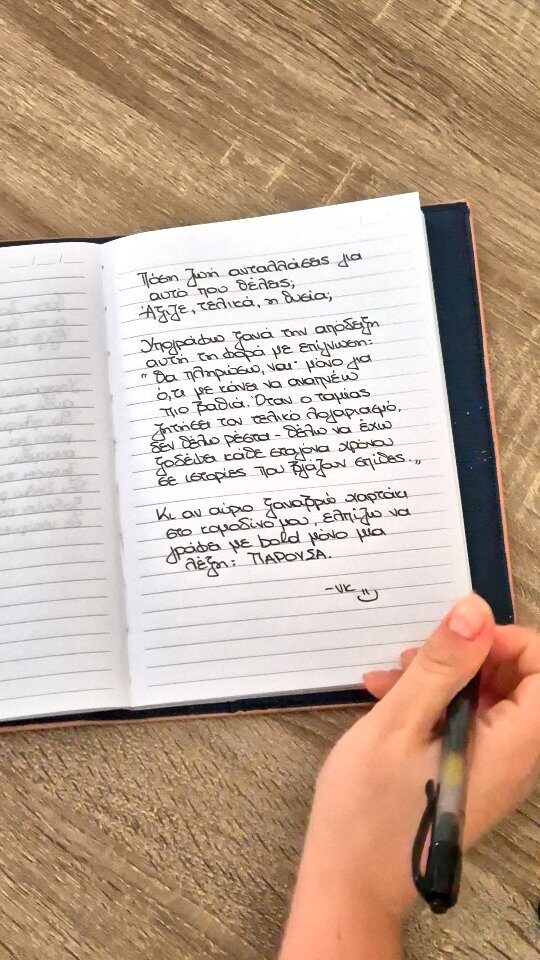 Πόση ζωή ανταλλάσεις για
αυτό που θέλεις;
Άξιζε, τελικά, η θυσία;
Υπογράφω ξανά την απόδειξη
αυτή τη φορά με επίγνωση:
"Θα πληρώσω, ναι· μόνο για
ό,τι με κάνει να αναπνέω
πιο βαθιά. Όταν ο ταμίας
ζητήσει τον τελικό λογαριασμό,
δεν θέλω ρέστα - θέλω να έχω
ξοδέψει κάθε σταγόνα χρόνου
σε ιστορίες που βγάζουν σπίθες."
Κι αν αύριο ξαναβρώ χαρτάκι
στο κομοδίνο μου, ελπίζω να
γράφει με bold μόνο μια
λέξη: ΠΑΡΟΥΣΑ.
-VK